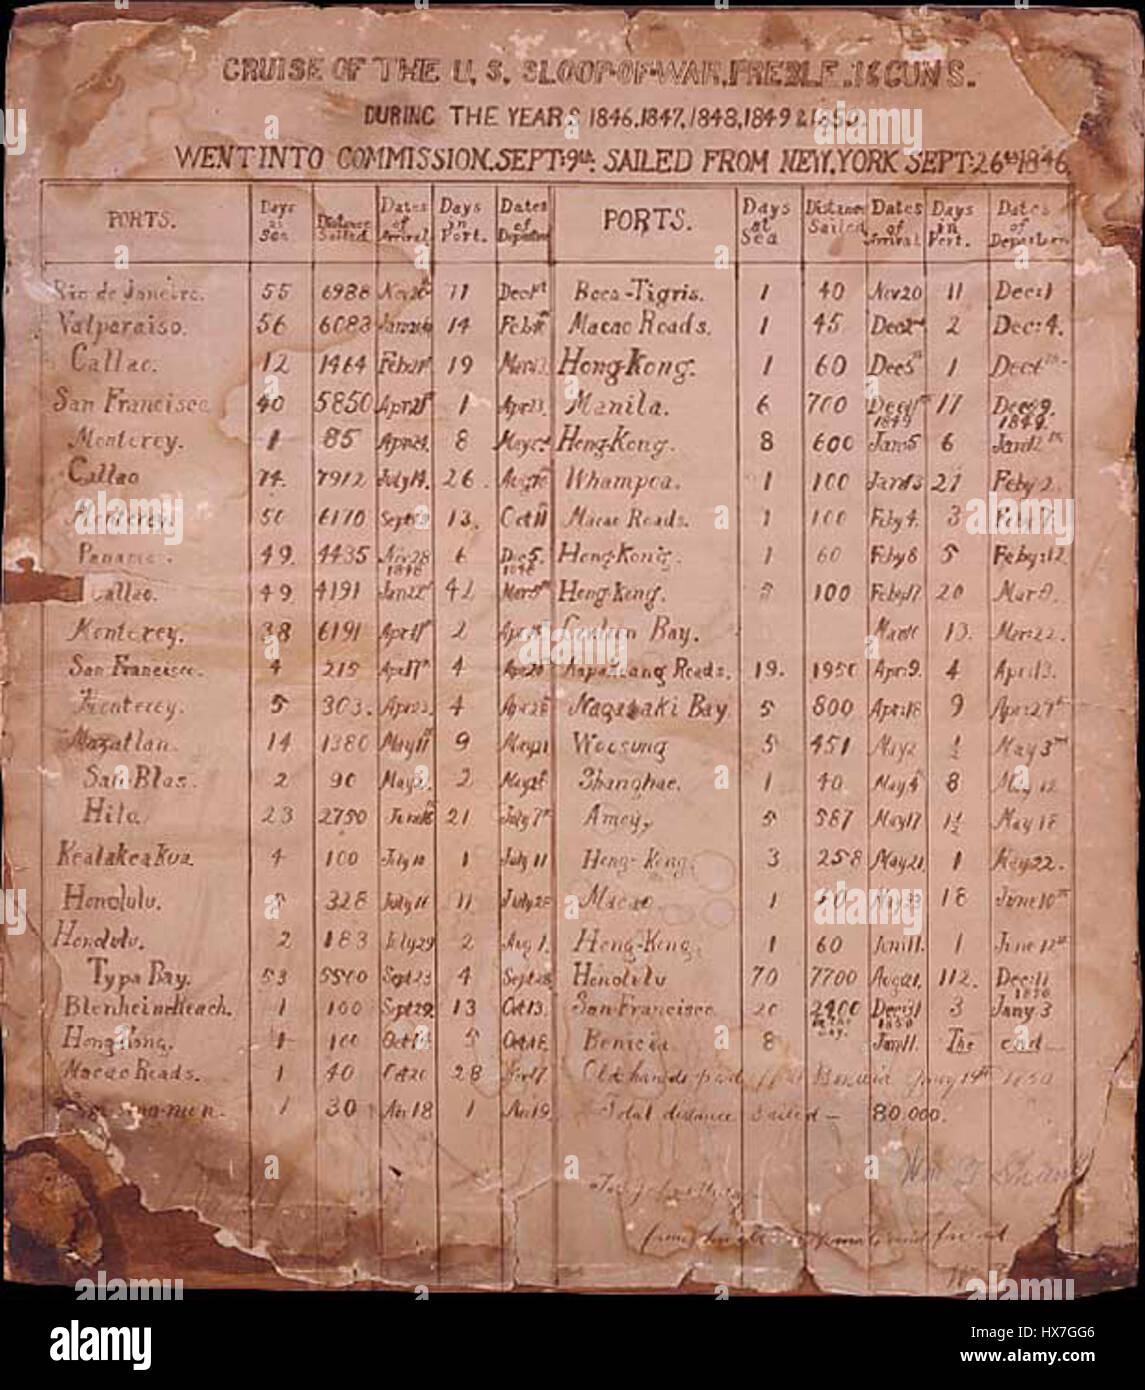 CRUISE OF THE U.S. SLOOP-OF-WAR, PREBLE, 16 GUNS.
DURING THE YEARS 1846, 1847, 1848, 1849 & 1850.
WENT INTO COMMISSION, SEPT: 9th. SAILED FROM NEW, YORK SEPT: 26th 1846
PORTS. Days at Sea Distance Sailed Dates of Arrival Days in Port. Dates of Departure PORTS. Days at Sea Distance Sailed Dates of Arrival Days in Port. Dates of Departure
Rio de Janeiro. 55 6988 11 Dec 1st Boca-Tigris. 1 40 Nov 20 11 Dec: 1
Valparaiso. 56 6083 14 Macao Roads. 1 45 Dec 2nd 2 Dec: 4.
Callao. 12 1464 Feb 21st 19 Hong-Kong. 1 60 Dec 5th 1 Dec 6th
San Francisco 40 5850 Apr 21st 1 Apr 23. Manila. 6 700 Dec 11th 17 Dec 29.
1849 1849.
Monterey. 1 85 Apr 24. 8 May 2nd Hong-Kong. 8 600 Jan 5 6 Jan 12th
Callao 74. 7912 July 14. 26. Whampoa. 1 100 Jan 13 21 Feby 2.
Monterey. 50 6170 13. Oct 11 Macao Roads. 1 100 Feby 4. 3 Feb: 7.
Panama. 49. 4435 Nov 28 6 Dec 5. Hong-Kong. 1 60 Feby 8 5 Feby: 12.
1848 1848
Callao. 49. 4191 Jan 22nd 42 Hong-Kong. 100 Feby 17 20 Mar 9.
Monterey. 38 6191 2 Bay. 13. Mar: 22.
San Francisco. 4 215 Apr 17th 4 Roads. 19. 1950 Apr 9. 4 Apr 13.
Monterey. 5 303. 4 Nagasaki Bay 5 800 Apr: 18 9 Apr 27th
Mazatlan. 14 1380 9 May 21 Woosung 5 451 May 2 ½ May 3rd
San Blas. 2 90 2 Shanghae. 1 40 8
Hilo. 23 2750 21 July 7th Amoy. 5 587 May 17 1½ May 18
Kealakeakua. 4 100 July 10 1 July 11 Hong-Kong. 3 258 May 21 1 May 22.
Honolulu. 328 11 Macao. 1 18 June 10th
Honolulu. 2 183 July 29 2 Aug 1. Hong-Kong. 1 60 Jun 11. 1 June 12th
Typa Bay. 53 5500 Sept 23 4 Honolulu 70 7700 112. Dec: 11
1850
Blenheim Reach. 1 100 Sept 29 13 Oct 13. San Francisco 20 2400 3 Jany 3
1850
Hong Kong. 1 100 5 Oct 18. Benicia. 8 Jan 11. The end
Macao Roads. 1 40 Oct 20 28 Old hands paid Benicia Jany 14th 1850
1 30 Nov 18 1 Nov 19. Total distance Sailed — 80,000.
from and friend
alamy
Image ID: HX7GG6
www.alamy.com